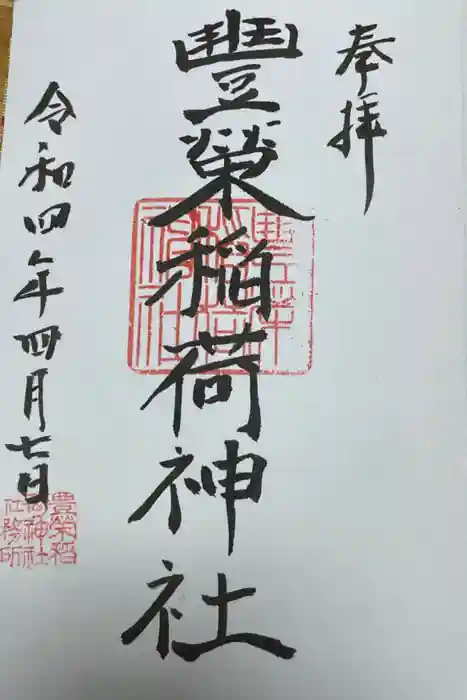 奉拝
豐榮稲荷神社
令和四年四月七日
豊栄稲
荷神社
社務所